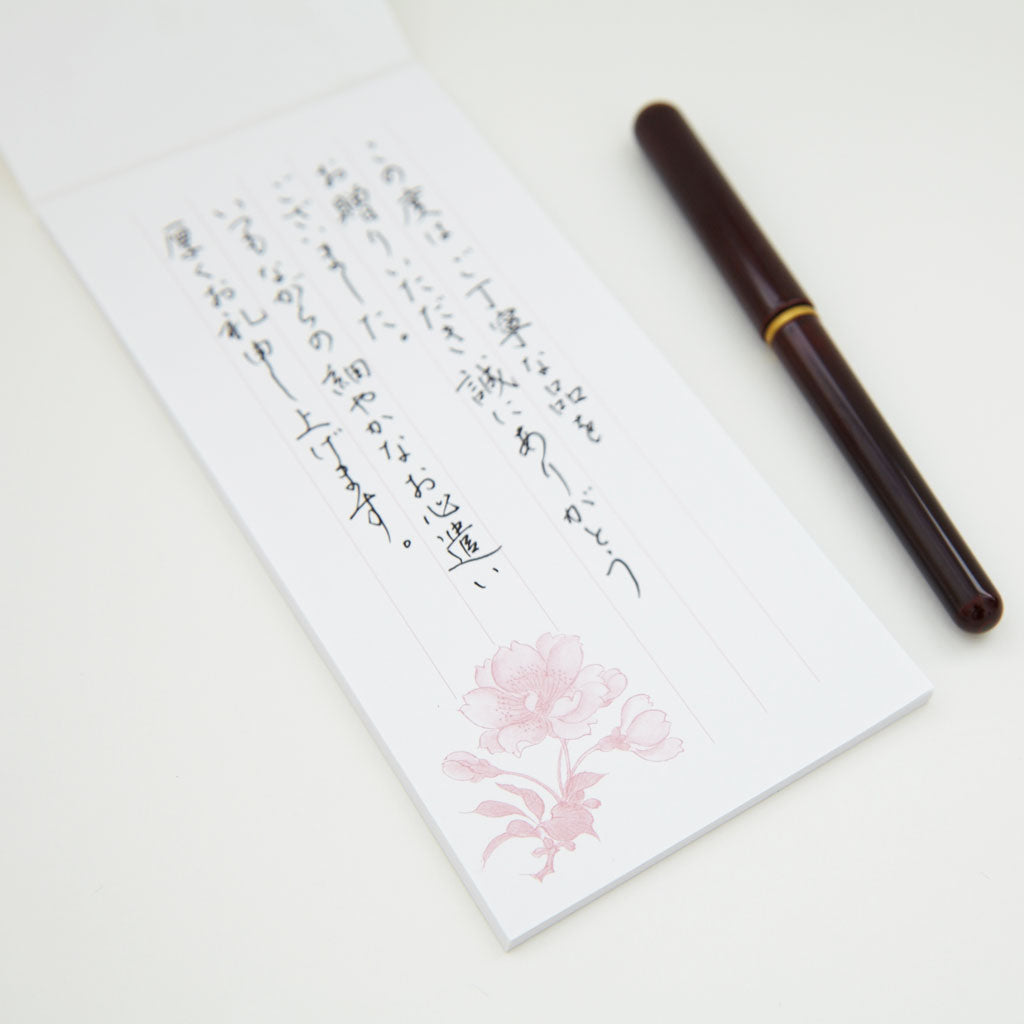 この度はご丁寧な品を
お贈りいただき誠にありがとう
ございました。
いつもながらの細やかなお心遣い
厚くお礼申し上げます。